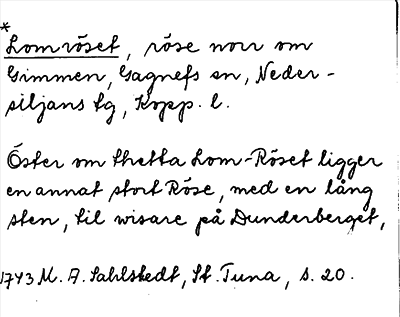 *
Lomröset, röse norr om
Gimmen, Gagnefs sn, Neder-
siljans tg, Kopp. l.
Öster om thetta Lom-Röset ligger
en annat stort Röse, med en lång
sten, til wisare på Dunderberget,
1743 M. A. Sahlstedt, St. Tuna, s. 20.